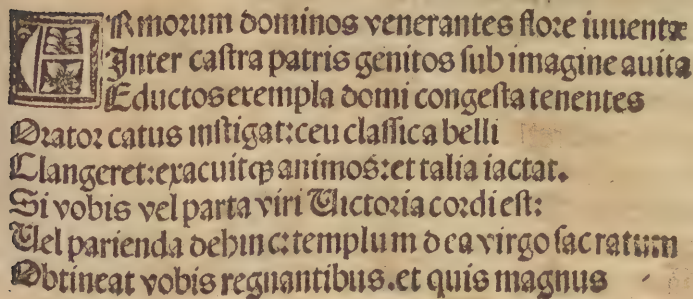 ARmorum dominos venerantes flore iuuentæ
Inter caſtra patris genitos ſub imagine auita
Eductos exempla domi congeſta tenentes
Orator catus inſtigat:ceu claſſica belli
Clangeret:exacuitqꝫ animos:et talia iactat.
Si vobis vel parta viri Victoria cordi eſt:
Vel parienda dehinc:templum dea virgo ſacratum
Obtineat vobis regnantibus.et quis magnus